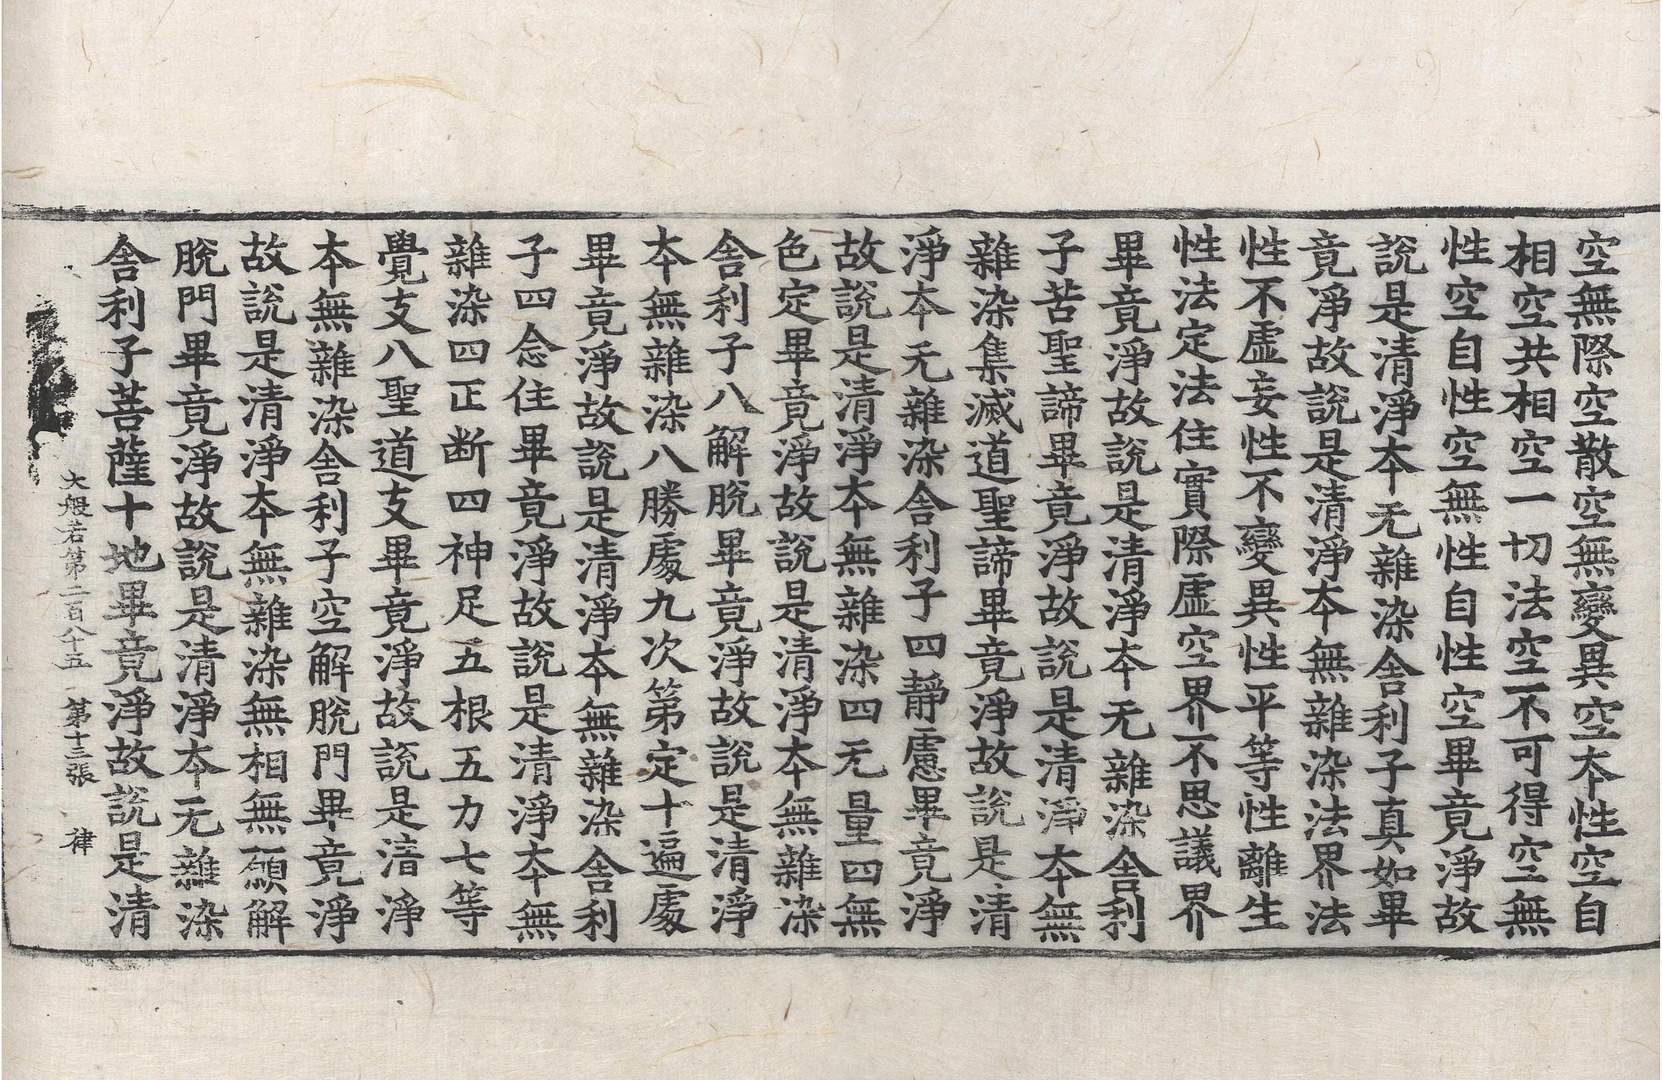 空無際空散空無變異空本性空自
相空共相空一切法空不可得空無
性空自性空無性自性空畢竟淨故
說是清淨夲无雜染舍利子真如畢
竟淨故說是清淨夲無雜染法界法
性不虛妄性不變異性平等性離生
性法定法住實際虛空界不思議界
畢竟淨故說是清淨夲无雜染舍利
子苦聖諦畢竟淨故說是清淨夲無
雜染集滅道聖諦畢竟淨故說是清
淨夲无雜染舍利子四靜慮畢竟淨
故說是清淨夲無雜染四无量四無
色定畢竟淨故說是清淨夲無雜染
舍利子八解脫畢竟淨故說是清淨
夲無雜染八勝處九次第定十遍處
畢竟淨故說是清淨夲無雜染舍利
子四念住畢竟淨故說是清淨夲無
雜染四正断四神足五根五力七等
覺支八聖道支畢竟淨故說是清淨
夲無雜染舍利子空解脫門畢竟淨
故說是清淨夲無雜染無相無願解
脫門畢竟淨故說是清淨夲无雜染
舍利子菩薩十地畢竟淨故說是清
大般若第二百八十五 第十三張 律